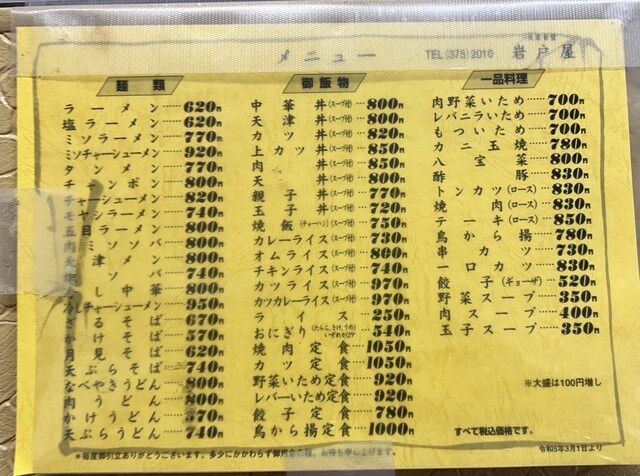 メニュー TEL(375)2010 岩戸屋
麺類
ラーメン……620円
塩ラーメン……620円
ミソラーメン……770円
ミソチャーシューメン……920円
タンメン……770円
チャンポン……800円
チャーシューメン……820円
モヤシラーメン……740円
五目ラーメン……800円
肉ミソソバ……800円
天津メン……800円
ソバ……740円
し中華……800円
冷しチャーシューメン……950円
ざるそば……670円
かけそば……570円
月見そば……620円
天ぷらそば……740円
なべやきうどん……800円
肉うどん……800円
かけうどん……570円
天ぷらうどん……740円
御飯物
中華丼(スープ付)……800円
天津丼(スープ付)……800円
カツ丼(スープ付)……820円
上カツ丼(スープ付)……850円
肉丼(スープ付)……850円
天丼(スープ付)……800円
親子丼(スープ付)……770円
玉子丼(スープ付)……720円
焼飯(チャーハン)(スープ付)……750円
カレーライス(スープ付)……730円
オムライス(スープ付)……800円
チキンライス(スープ付)……740円
カツライス(スープ付)……970円
カツカレーライス(スープ付)……970円
ライス……250円
おにぎり(たらこ、さけ、うめ)いずれか2ケ……540円
焼肉定食……1050円
カツ定食……1050円
野菜いため定食……920円
レバーいため定食……920円
餃子定食……780円
鳥から揚定食……1000円
一品料理
肉野菜いため……700円
レバニラいため……700円
もついため……700円
カニ玉焼……780円
八宝菜……800円
酢豚……830円
トンカツ(ロース)……830円
焼肉(ロース)……830円
テーキ(ロース)……850円
鳥から揚……780円
串カツ……730円
一口カツ……830円
餃子(ギョーザ)……520円
野菜スープ……350円
肉スープ……400円
玉子スープ……350円
※大盛は100円増し
すべて税込価格です。
令和5年3月1日より
＊毎度御引立ありがとうございます。多少にかかわらず御用命の程、お待ち申し上げます。